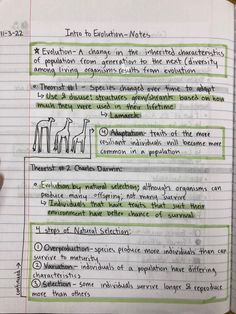 11-3-22
Intro to Evolution-Notes
★ Evolution- A change in the inherited characteristics
of population from generation to the next (diversity
among living organisms results from evolution
Theorist #1 - Species changed over time to adapt
↳ Use & disuse: structures grow/shrink based on how
much they were used in their lifetime
↳ Lamarck
④ Adaptation- traits of the more
resilient individuals will become more
common in a population
Theorist #2 Charles Darwin:
• Evolution by natural selection; although organisms can
produce many offspring, not many survive
↳ Individuals that have traits that suit their
environment have better chance of survival
4 steps of Natural Selection:
① Overproduction- species produce more individuals than can
survive to maturity
② Variation- individuals of a population have differing
characteristics
③ Selection- some individuals survive longer & reproduce
more than others
continued →